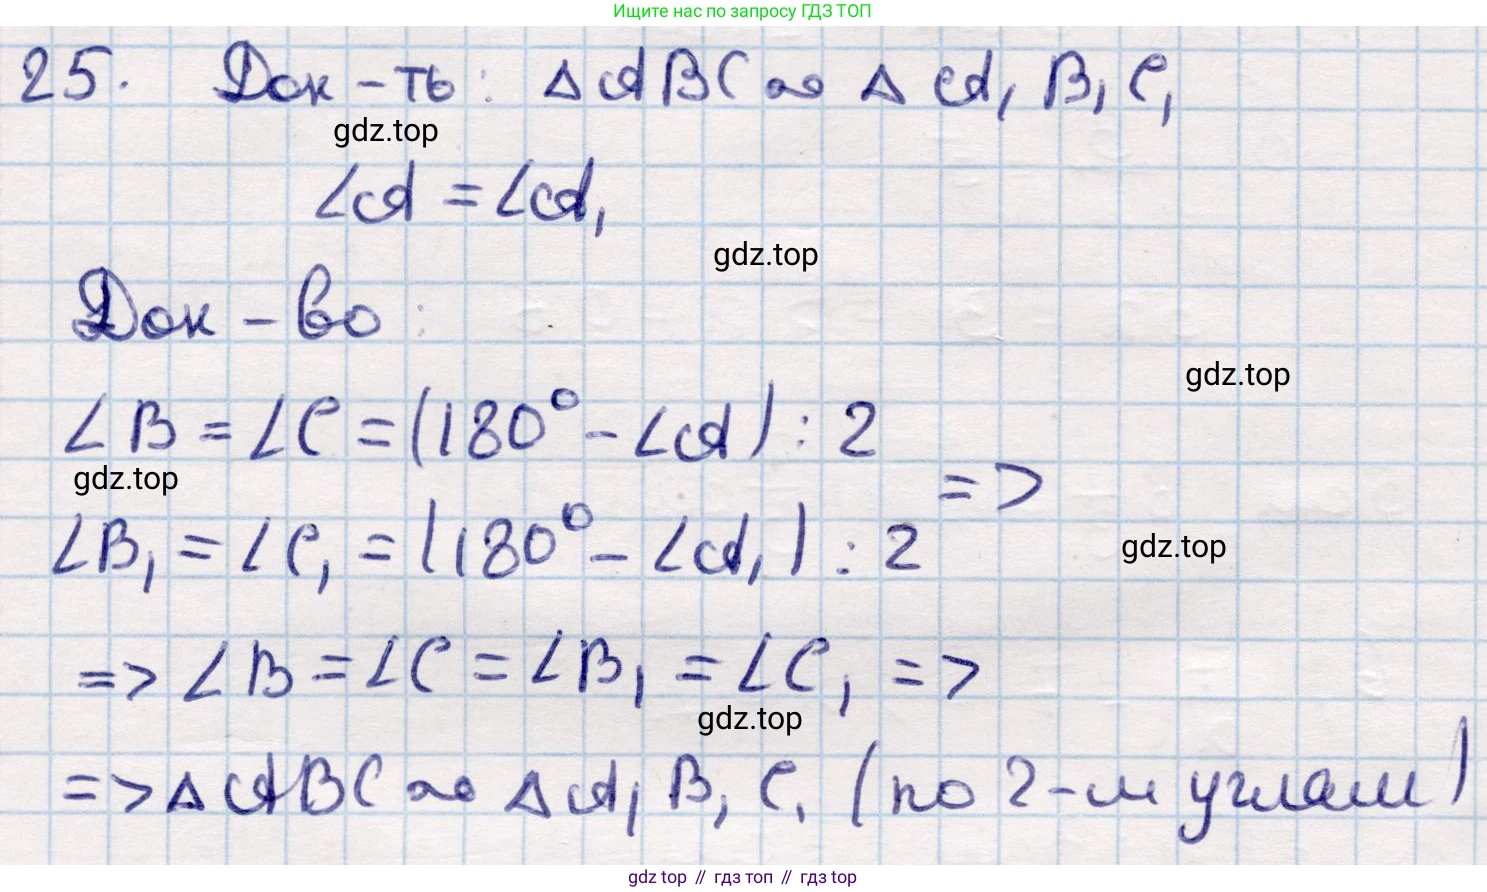 Ищите нас по запросу ГДЗ ТОП
25. Док-ть: ΔABC ∾ ΔA₁B₁C₁
gdz.top
∠A = ∠A₁
gdz.top
Док-во:
gdz.top
∠B = ∠C = (180° - ∠A) : 2
gdz.top
=>
∠B₁ = ∠C₁ = (180° - ∠A₁) : 2
gdz.top
=> ∠B = ∠C = ∠B₁ = ∠C₁ =>
gdz.top
=> ΔABC ∾ ΔA₁B₁C₁ (по 2-м углам)
gdz top // гдз топ // гдз top